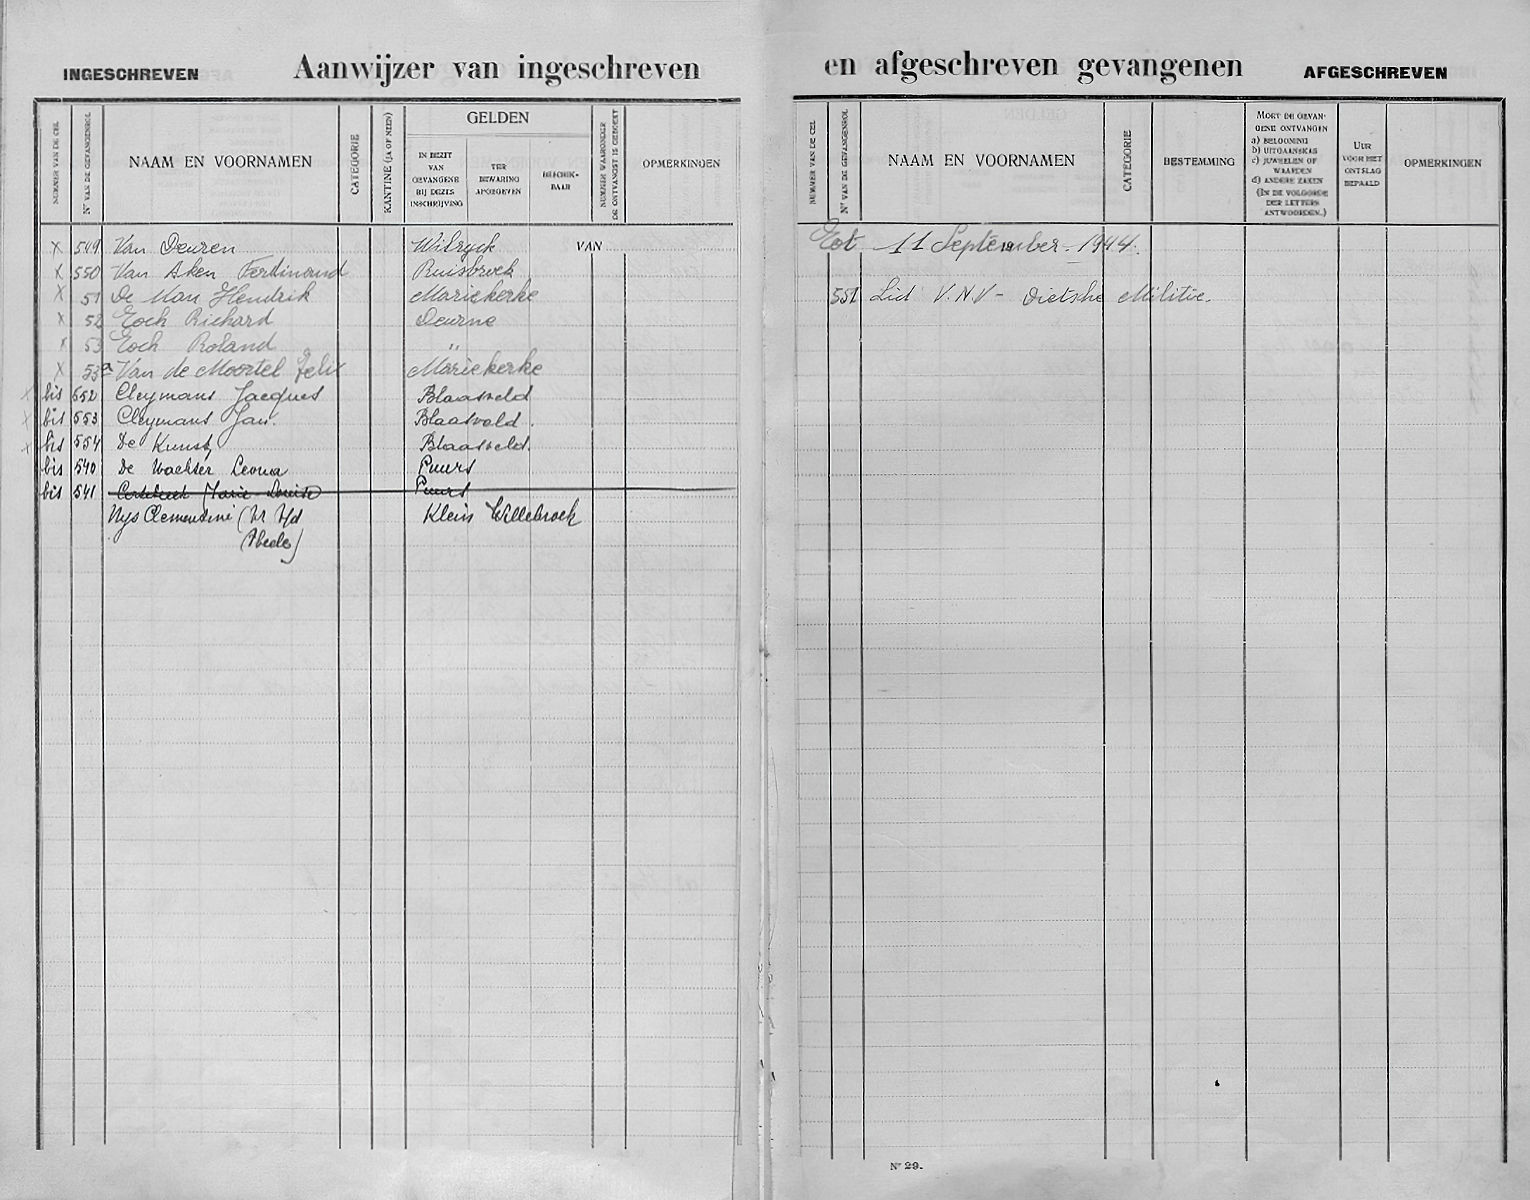 INGESCHREVEN
Aanwijzer van ingeschreven
NUMMER VAN DE CEL
Nr VAN DE GEVANGENROL
NAAM EN VOORNAMEN
CATEGORIE
KANTINE (JA OF NEEN)
GELDEN
IN BEZIT
VAN
GEVANGENE
BIJ DEZES
INSCHRIJVING
TER
BEWARING
AFGEGEVEN
BESCHIK-
BAAR
NUMMER WAARONDER
DE ONTVANGST IS GEBOEKT
OPMERKINGEN
X 549 Van Deuren Wilryck VAN
X 550 Van Aken Ferdinand Ruisbroek
X 51 De Man Hendrik Mariekerke
X 52 Toch Richard Deurne
X 53 Toch Roland "
X 53a Van de Moortel Felix Mariekerke
X bis 552 Cleymans Jacques Blaasveld
X bis 553 Cleymans Jan. Blaasveld.
X bis 554 De Kunst Blaasveld.
bis 540 De Wachter Leona Puurs
bis 541 Marie Louise Puurs
Nys Clementine Klein Willebroek
en afgeschreven gevangenen
AFGESCHREVEN
NUMMER VAN DE CEL
Nr VAN DE GEVANGENROL
NAAM EN VOORNAMEN
CATEGORIE
BESTEMMING
MOET DE GEVAN-
GENE ONTVANGEN
a) BELOONING
b) UITGAANSKAS
c) JUWEELEN OF
WAARDEN
d) ANDERE ZAKEN
(IN DE VOLGORDE
DER LETTERS
ANTWOORDEN.)
UUR
VOOR HET
ONTSLAG
BEPAALD
OPMERKINGEN
Tot 11 September 19 - 1944.
551 Lid V.N.V - Dietsche Militie.
Nr 29.